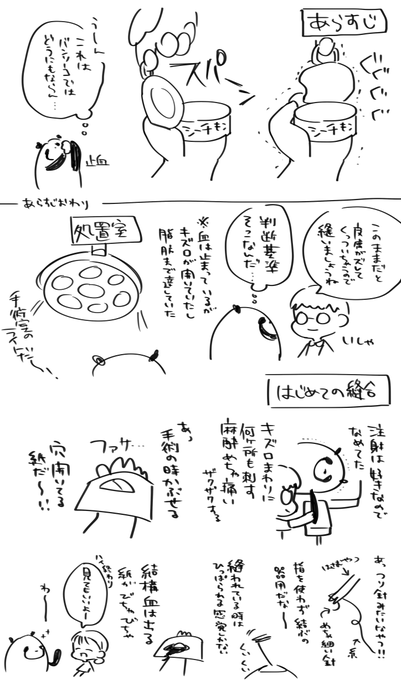 あらすじ
ぐぐぐぐ
シーチキン
スパー
シーチキン
うーん
これは
バンソーコでは
どうにもならん…
止血
あらすじおわり
このままだと
皮膚がズレて
くっついちゃうので
縫いましょうね
いしゃ
判断基準
そこなんだ…
※血は止まっているが
キズ口が開いていたし
脂肪まで達していた
処置室
手術室の
ライトだ〜…
はじめての縫合
注射は好きなので
なめてた
キズ口まわりに
何ヶ所も刺す
麻酔めちゃ痛い
ザクザクする
あっ
手術の時かぶせる
ファサ…
穴開いてる
紙だ〜!!
あ、ツリ針みたいなやつ!!
はさむやつ
めちゃ細い針
糸
指を使わず結ぶの
器用だな〜
縫われている時は
ひっぱられる感覚しかない
くいくい
結構血は出る
紙がびちゃびちゃ
ハイ終わり
見てもいいよー
わ〜